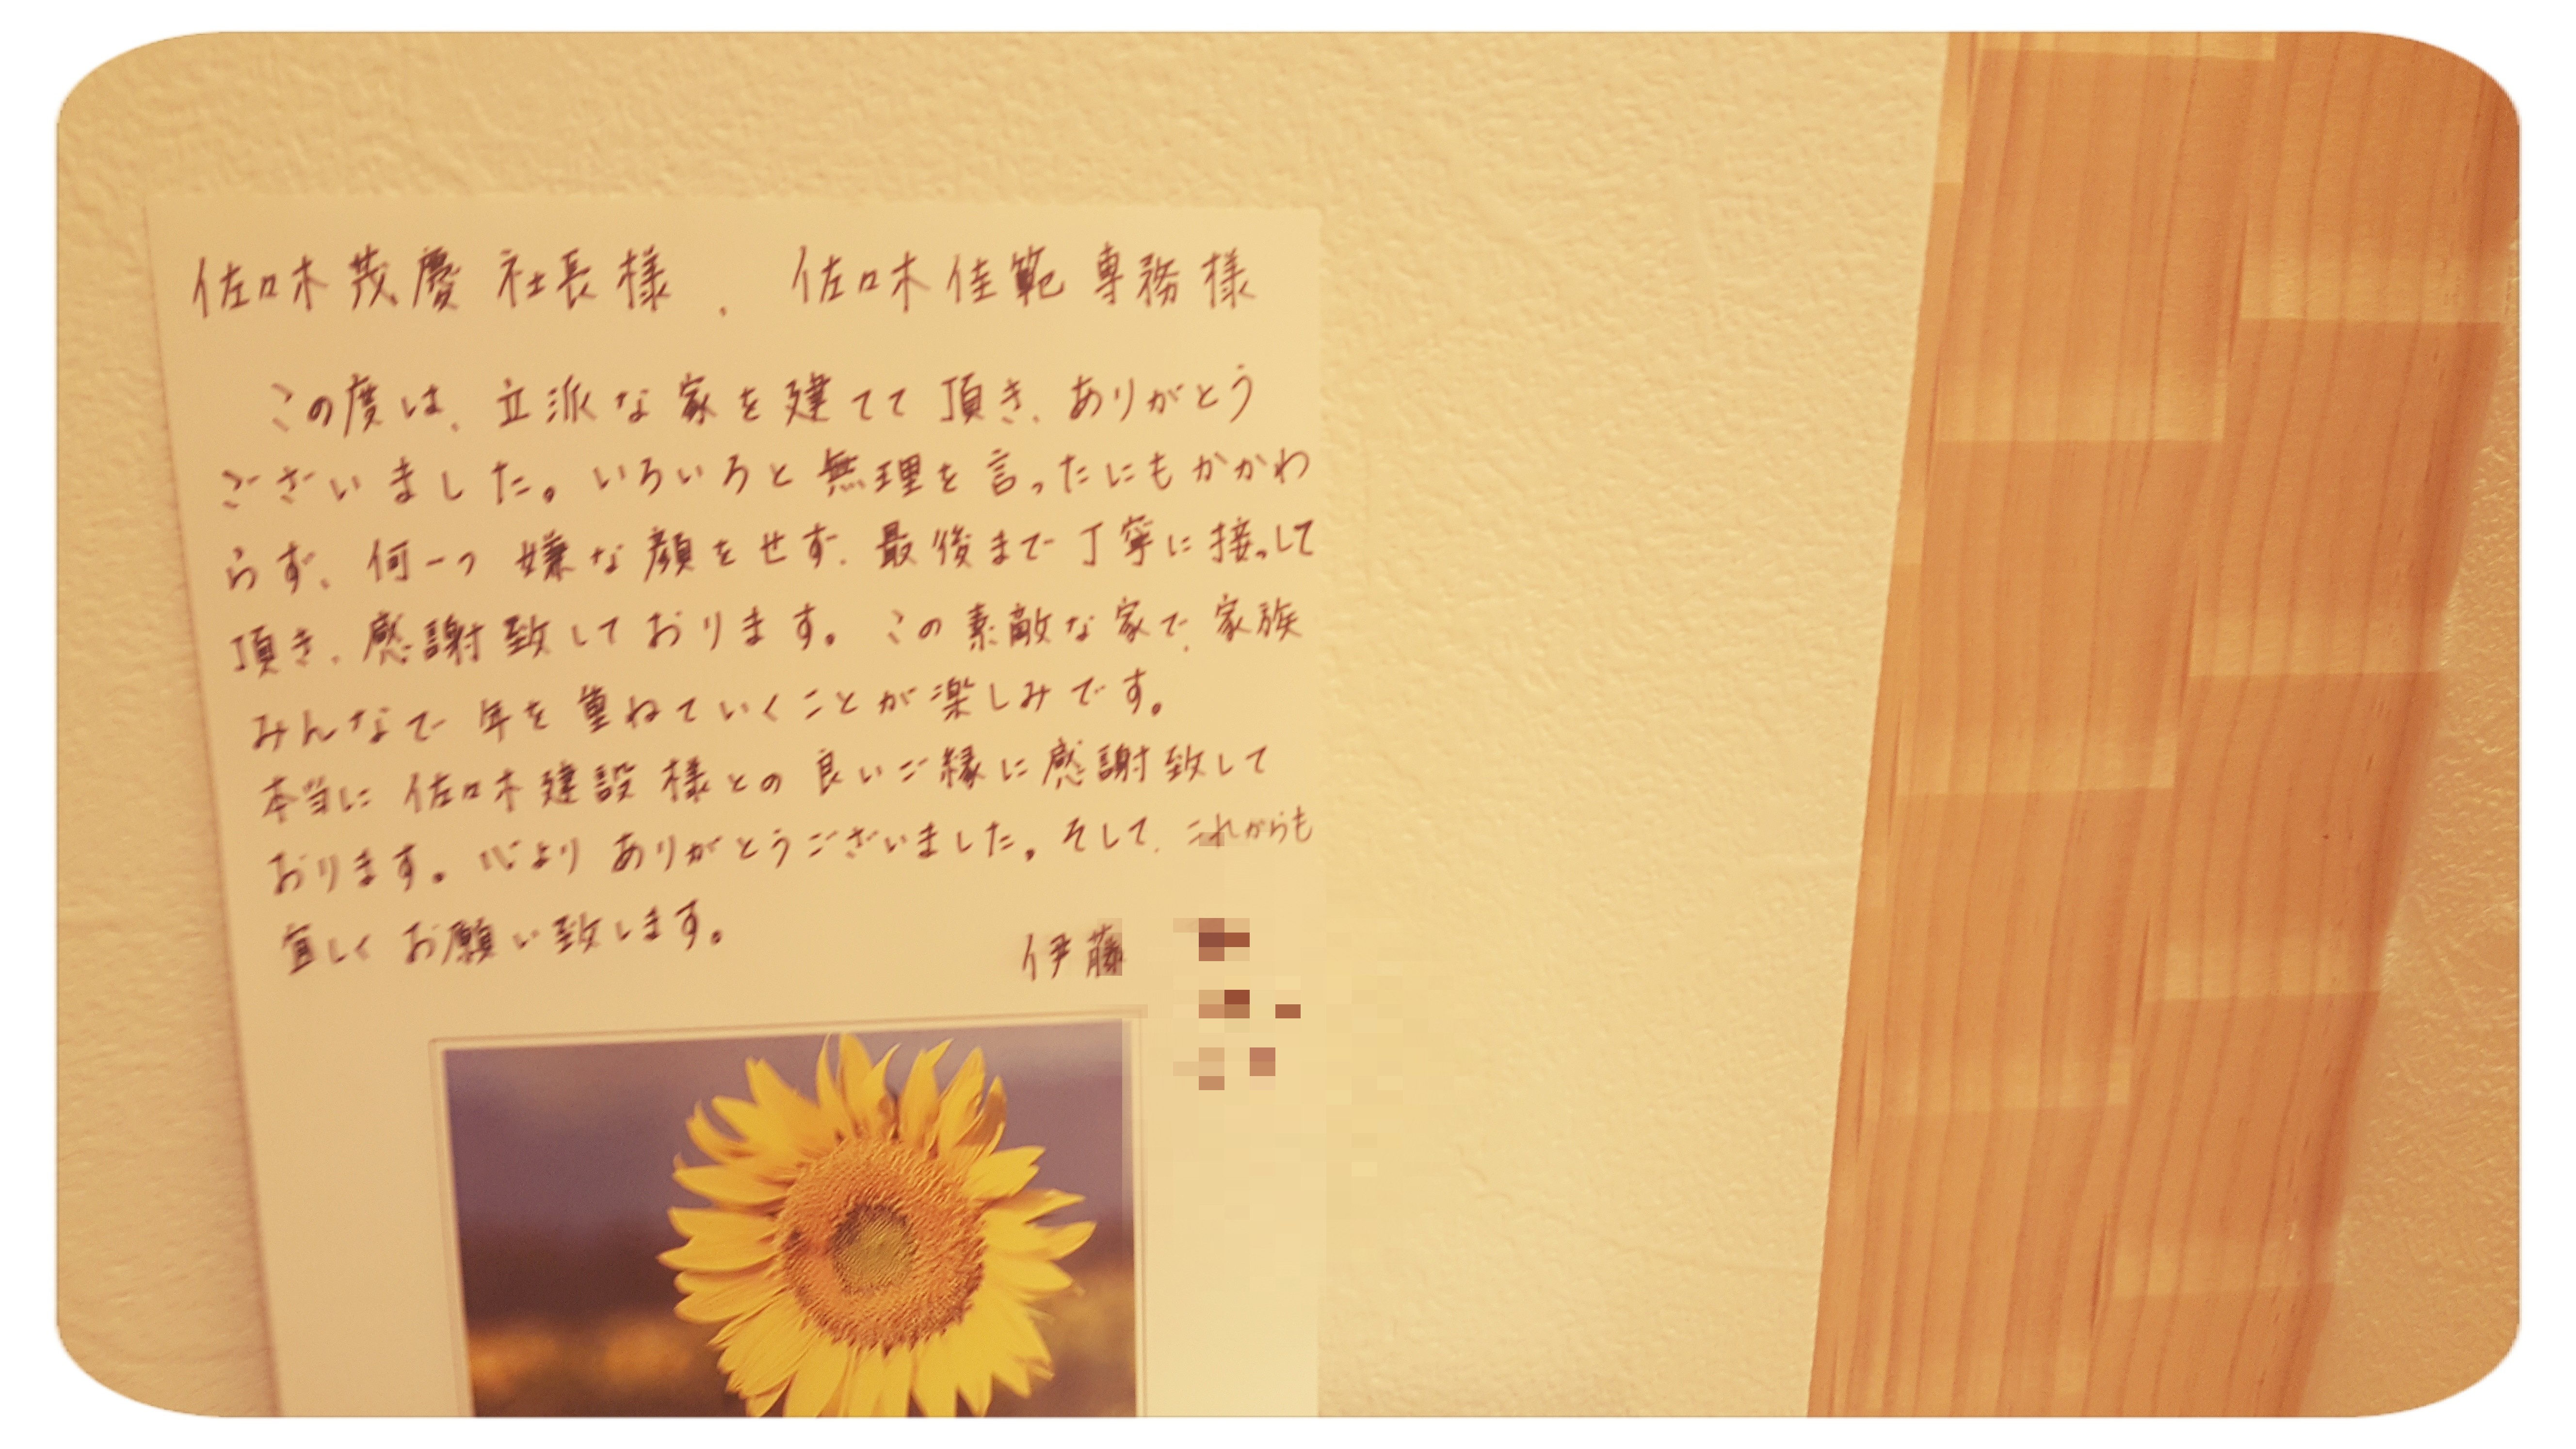 佐々木茂慶社長様、佐々木佳範専務様
この度は、立派な家を建てて頂き、ありがとう
ございました。いろいろと無理を言ったにもかかわ
らず、何一つ嫌な顔をせず、最後まで丁寧に接して
頂き、感謝致しております。この素敵な家で、家族
みんなで年を重ねていくことが楽しみです。
本当に佐々木建設様との良いご縁に感謝致して
おります。心よりありがとうございました。そして、これからも
宜しくお願い致します。
伊藤